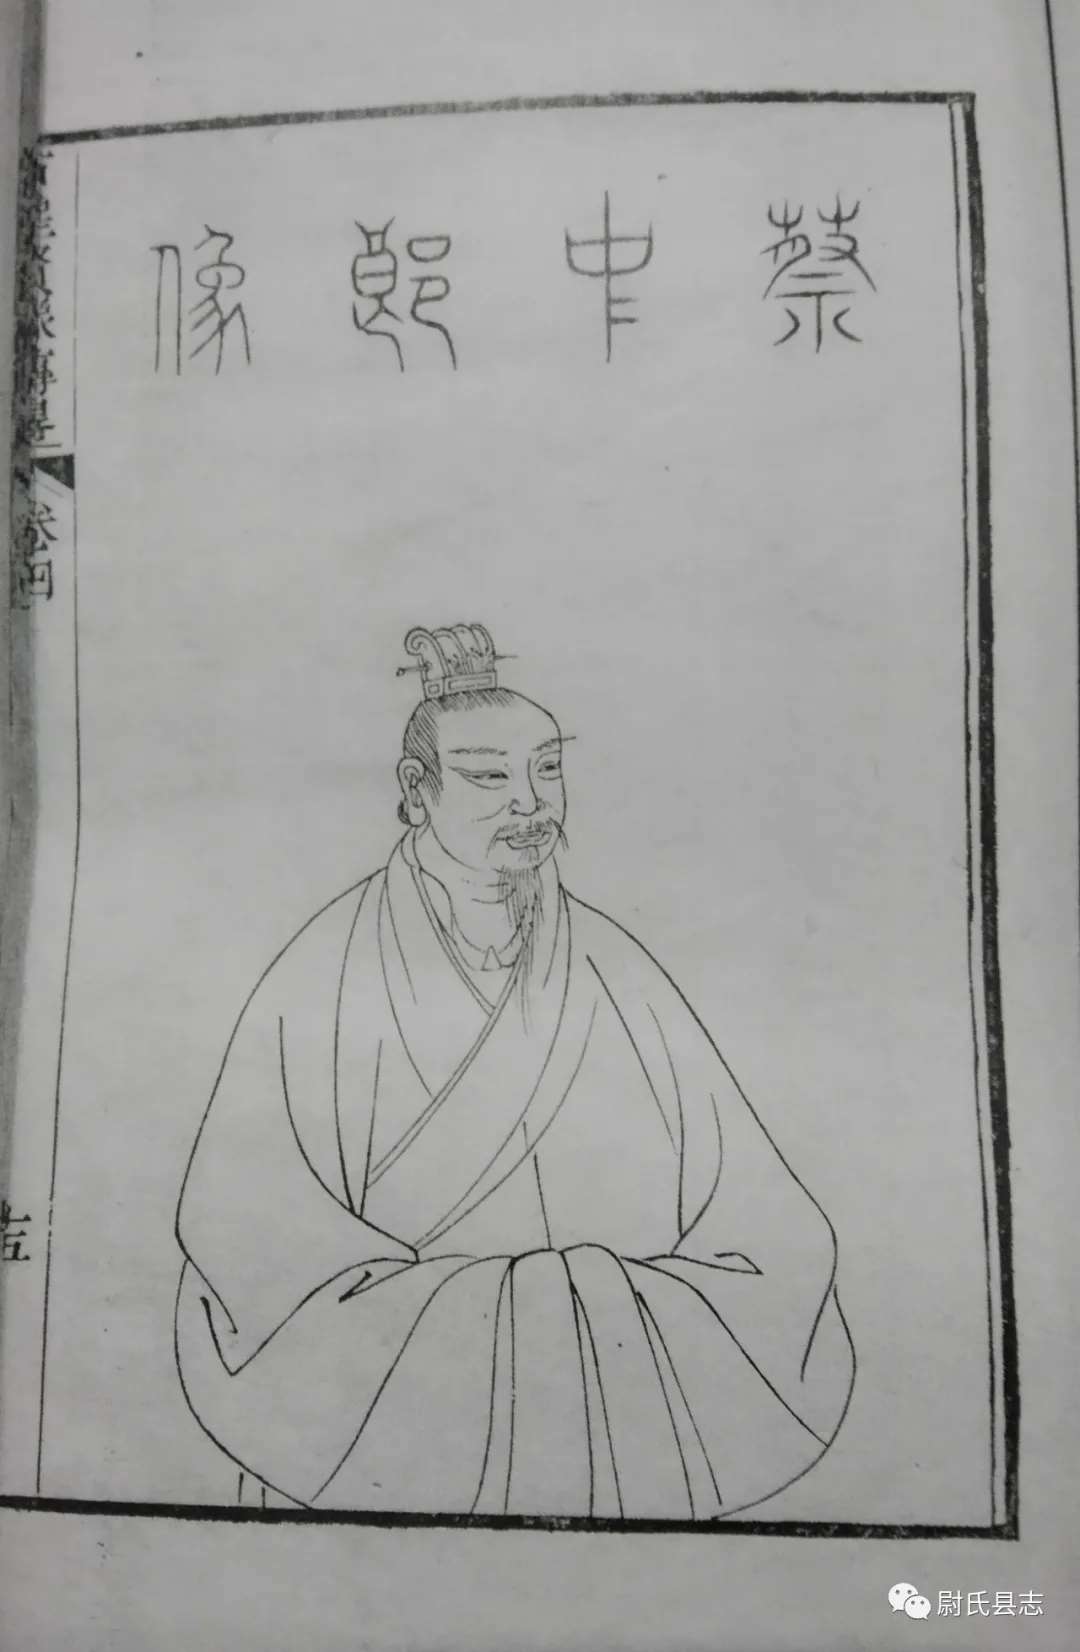 蔡中郎像
卷四
十五
尉氏县志